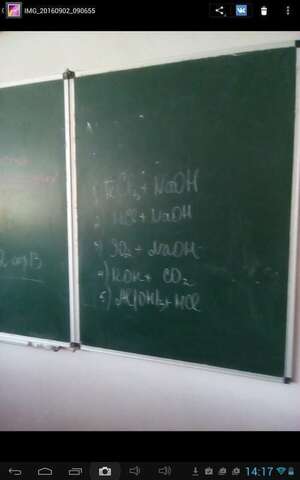 IMG_20160902_090655
1) FeCl₃ + NaOH
2) HCl + NaOH
3) SO₂ + NaOH
4) KOH + CO₂
5) Al(OH)₃ + HCl
14:17